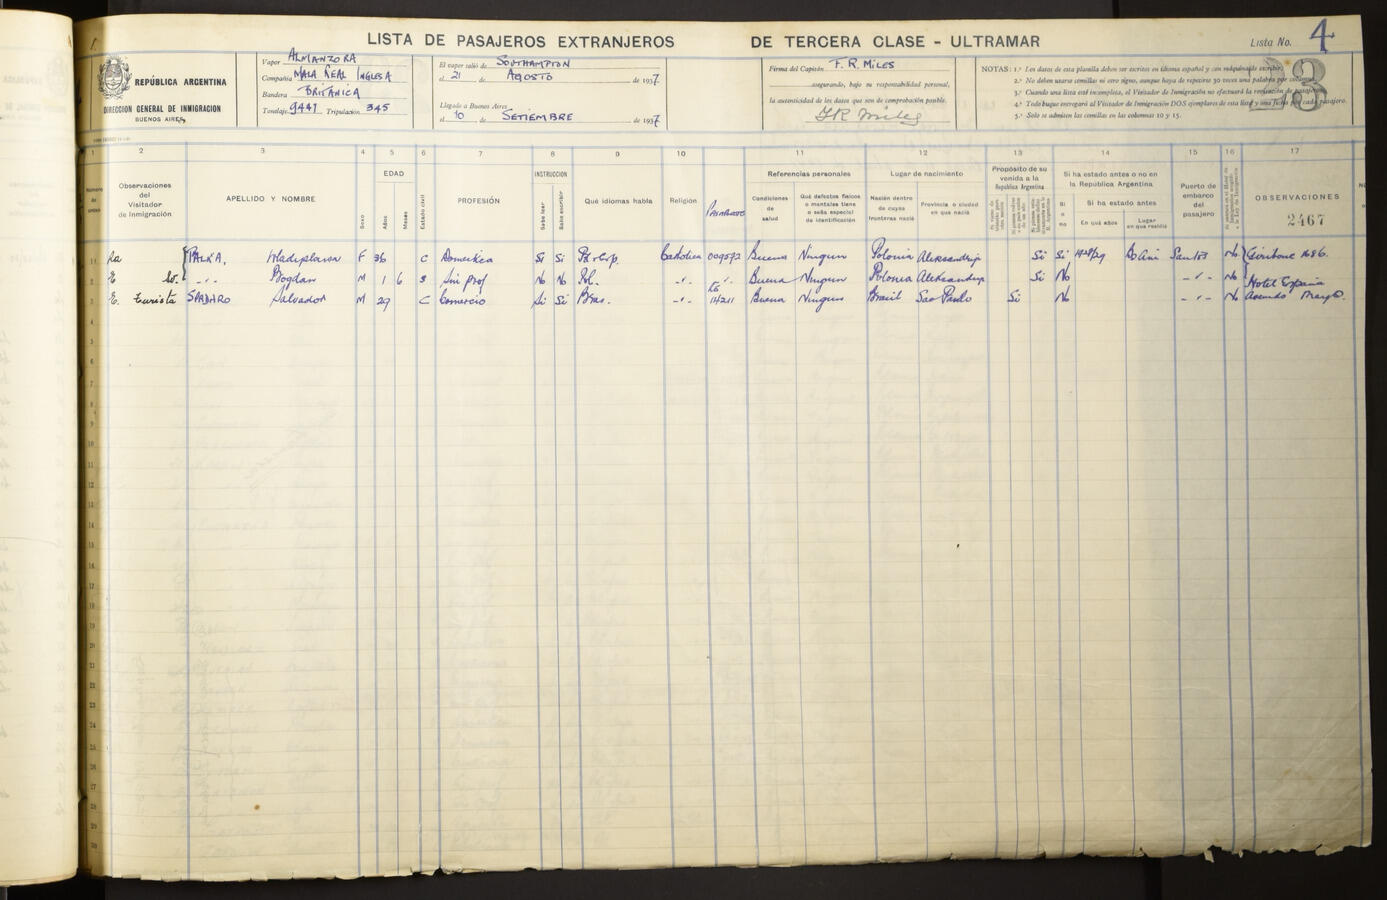 LISTA DE PASAJEROS EXTRANJEROS DE TERCERA CLASE - ULTRAMAR
Lista No. 4
REPÚBLICA ARGENTINA
DIRECCIÓN GENERAL DE INMIGRACIÓN
BUENOS AIRES
Vapor ALMANZORA
Compañía MALA REAL INGLESA
Bandera BRITANICA
Tonelaje 9441 Tripulación 345
El vapor salió de SOUTHAMPTON
el 21 de AGOSTO de 1937
Llegado a Buenos Aires
el 10 de SETIEMBRE de 1937
Firma del Capitán F. R. MILES
asegurando, bajo su responsabilidad personal,
la autenticidad de los datos que son de comprobación posible.
F R Miles
NOTAS: 1.ª Los datos de esta planilla deben ser escritos en idioma español y con máquina de escribir.
2.ª No deben usarse comillas ni otro signo, aunque haya de repetirse 30 veces una palabra por columna.
3.ª Cuando una lista esté incompleta, el Visitador de Inmigración no efectuará la recepción de pasajeros.
4.ª Todo buque entregará al Visitador de Inmigración DOS ejemplares de esta lista y una ficha por cada pasajero.
5.ª Solo se admiten las comillas en las columnas 10 y 15.
1 2 3 4 5 6 7 8 9 10 11 12 13 14 15 16 17
Observaciones del Visitador de Inmigración
APELLIDO Y NOMBRE
Sexo
EDAD
Años
Meses
Estado civil
PROFESIÓN
INSTRUCCION
Sabe leer
Sabe escribir
Qué idiomas habla
Religión
Pasaporte
Referencias personales
Condiciones de salud
Qué defectos físicos o mentales tiene o seña especial de identificación
Lugar de nacimiento
Nación dentro de cuyas fronteras nació
Provincia o ciudad en que nació
Propósito de su venida a la República Argentina
Si ha estado antes o no en la República Argentina
Si o no
Si ha estado antes
En qué años
Lugar en que residió
Puerto de embarco del pasajero
OBSERVACIONES
2467
Wladyslawa F 36 C Domestica Si Si Católica 009572 Buena Ningun Polonia Aleksandrja Si Si 1928/29 Santos No
Bogdan M 1 6 S Sin prof No No Pol. Buena Ningun Polonia Aleksandrja Si No No
E. Turista SPADARO Salvador M 29 C Comercio Si Si Bras. 114211 Buena Ningun Brasil Sao Paulo Si No No Hotel España